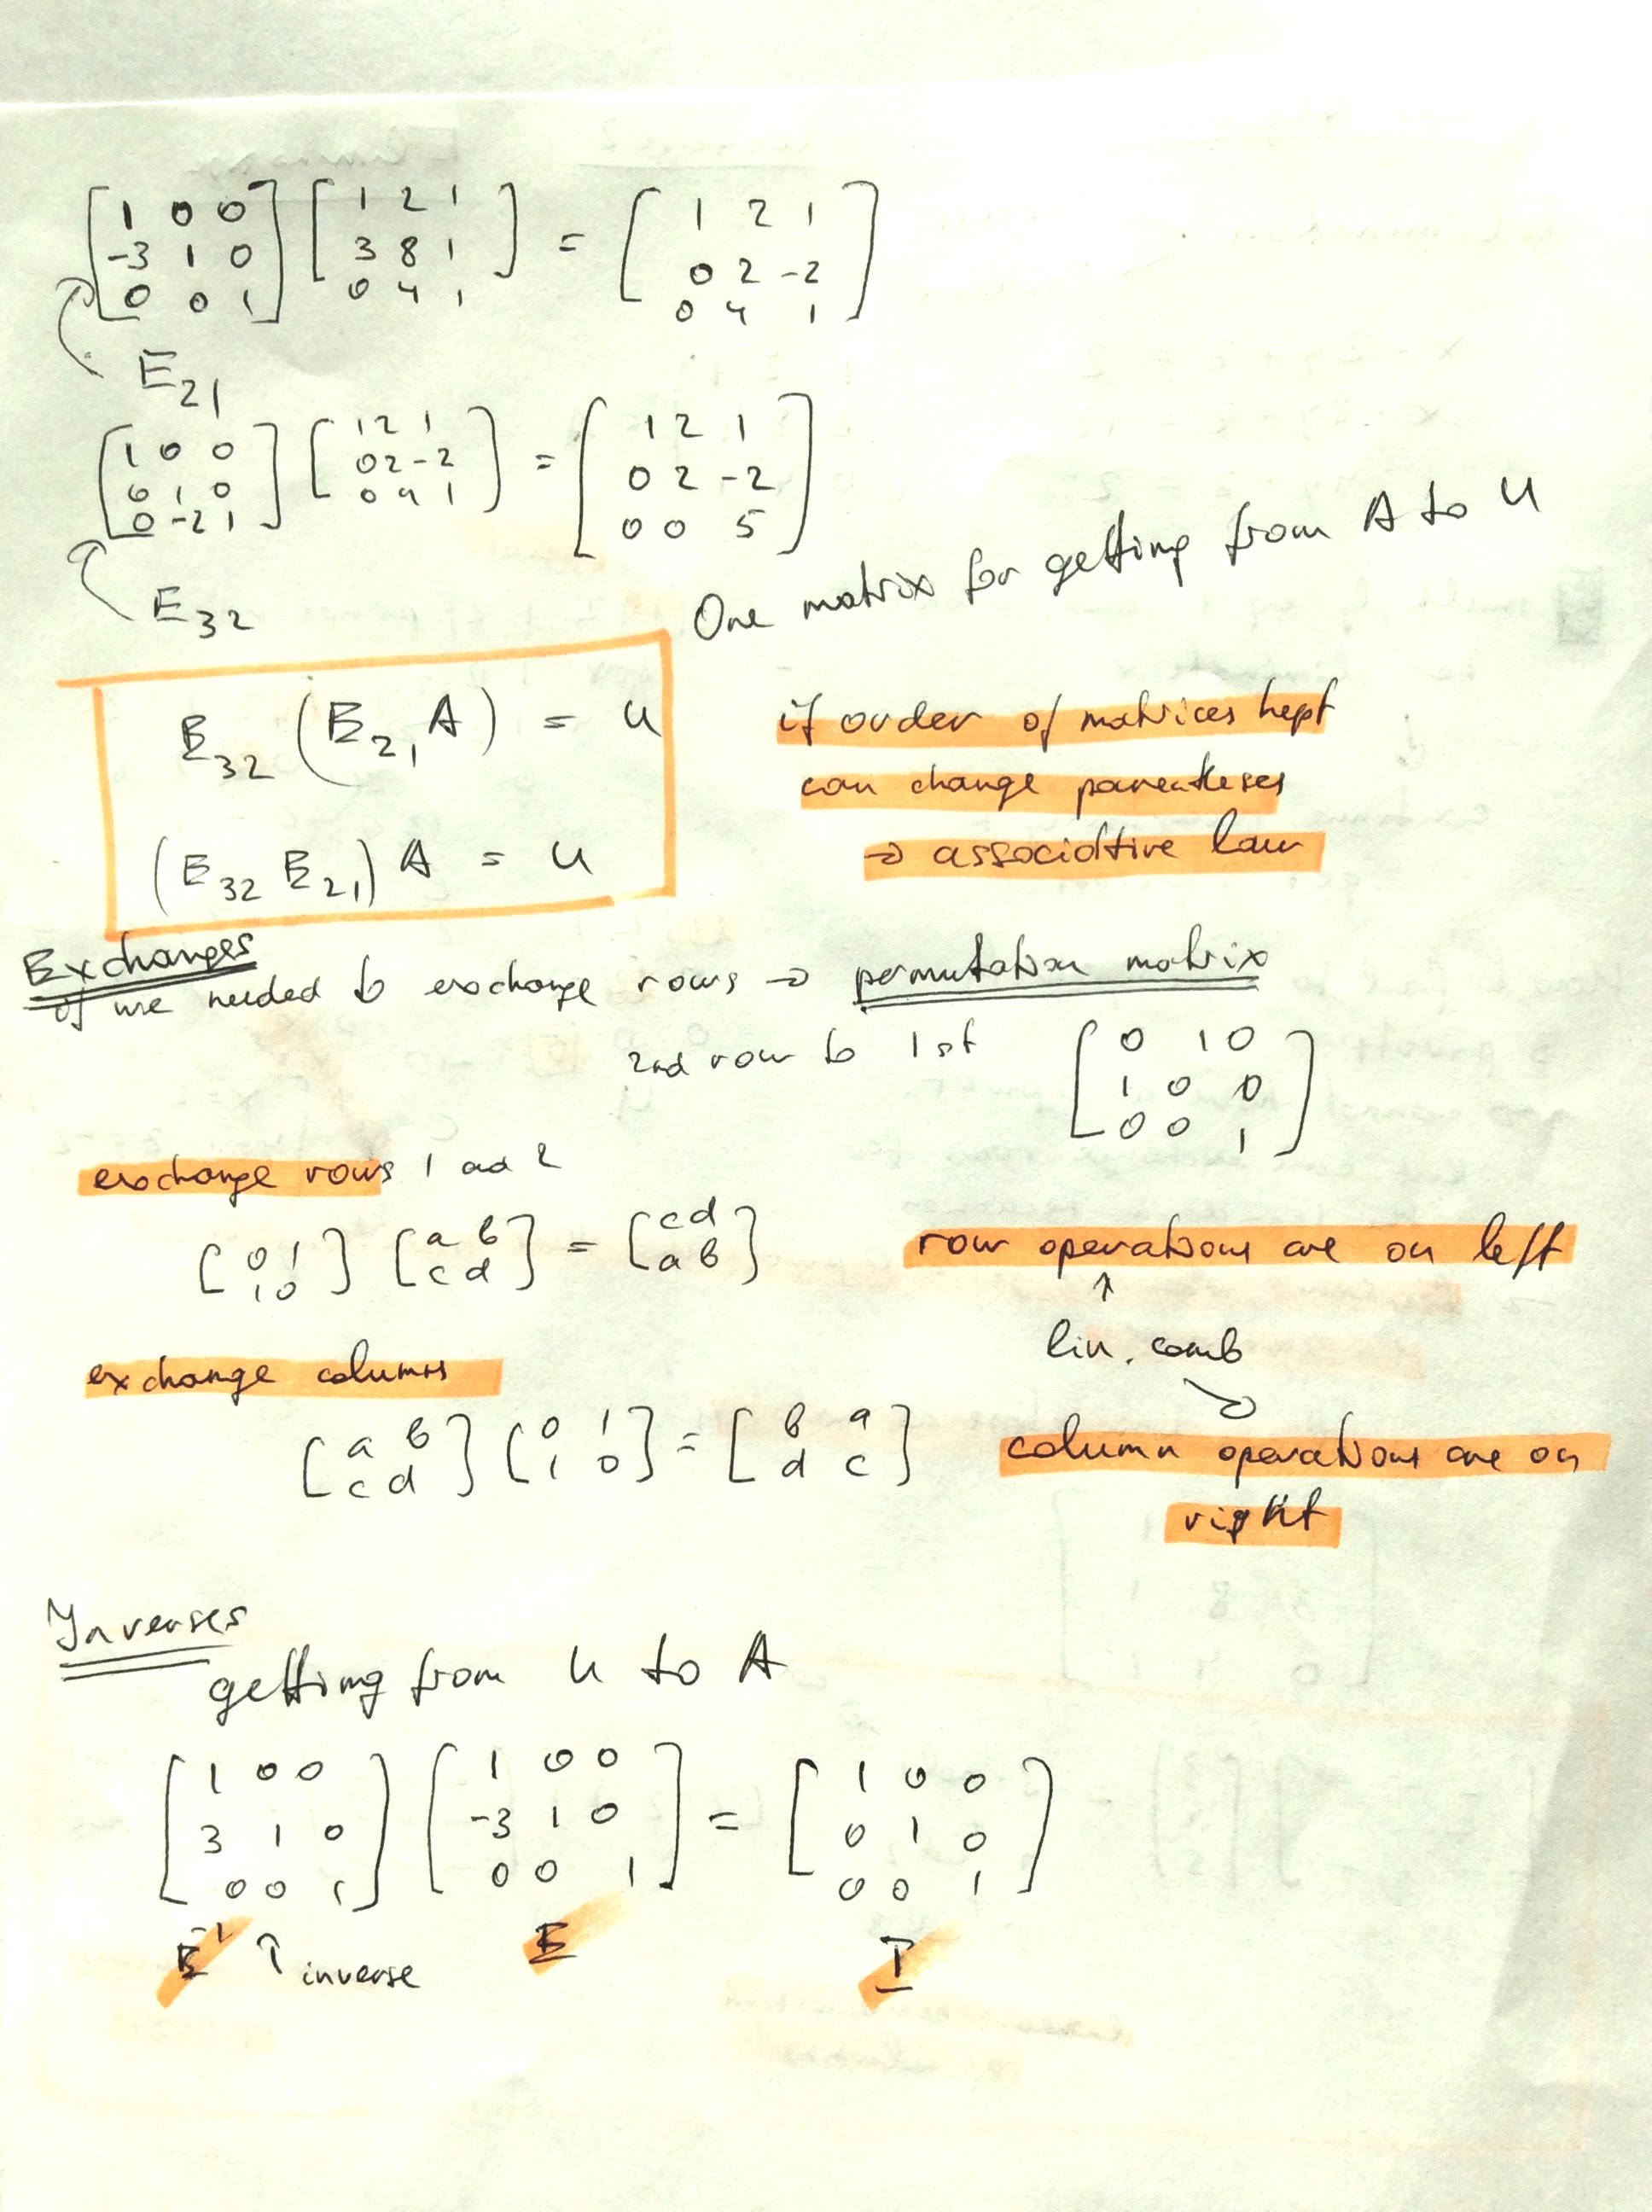 [1 0 0; -3 1 0; 0 0 1] [1 2 1; 3 8 1; 0 4 1] = [1 2 1; 0 2 -2; 0 4 1]
E21
[1 0 0; 0 1 0; 0 -2 1] [1 2 1; 0 2 -2; 0 4 1] = [1 2 1; 0 2 -2; 0 0 5]
E32
One matrix for getting from A to U
E32 (E21 A) = U
if order of matrices kept
can change parentheses
(E32 E21) A = U
→ associative law
Exchanges
If we needed to exchange rows → permutation matrix
2nd row to 1st [0 1 0; 1 0 0; 0 0 1]
exchange rows 1 ad 2
[0 1; 1 0] [a b; c d] = [c d; a b]
row operations are on left
↑
lin. comb
exchange columns
[a b; c d] [0 1; 1 0] = [b a; d c]
column operations are on
right
Inverses
getting from U to A
[1 0 0; 3 1 0; 0 0 1] [1 0 0; -3 1 0; 0 0 1] = [1 0 0; 0 1 0; 0 0 1]
E⁻¹ ↑ inverse E I